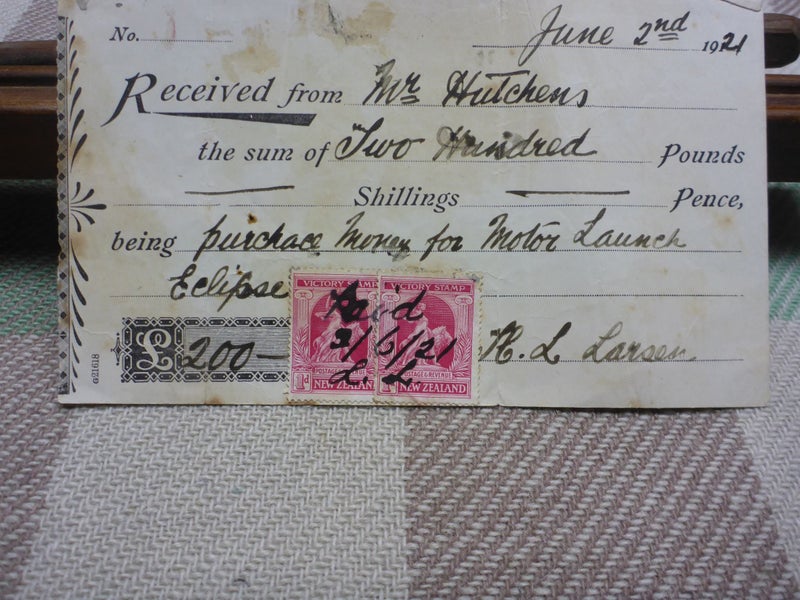 No. June 2nd 1921
Received from Mr Hutchens
the sum of Two Hundred Pounds
Shillings Pence,
being purchace Money for Motor Launch
Eclipse
VICTORY STAMP VICTORY STAMP
Paid
£ 200— 2/6/21 H. L Larsen
POSTAGE & REVENUE
1d NEW ZEALAND NEW ZEALAND
G21618